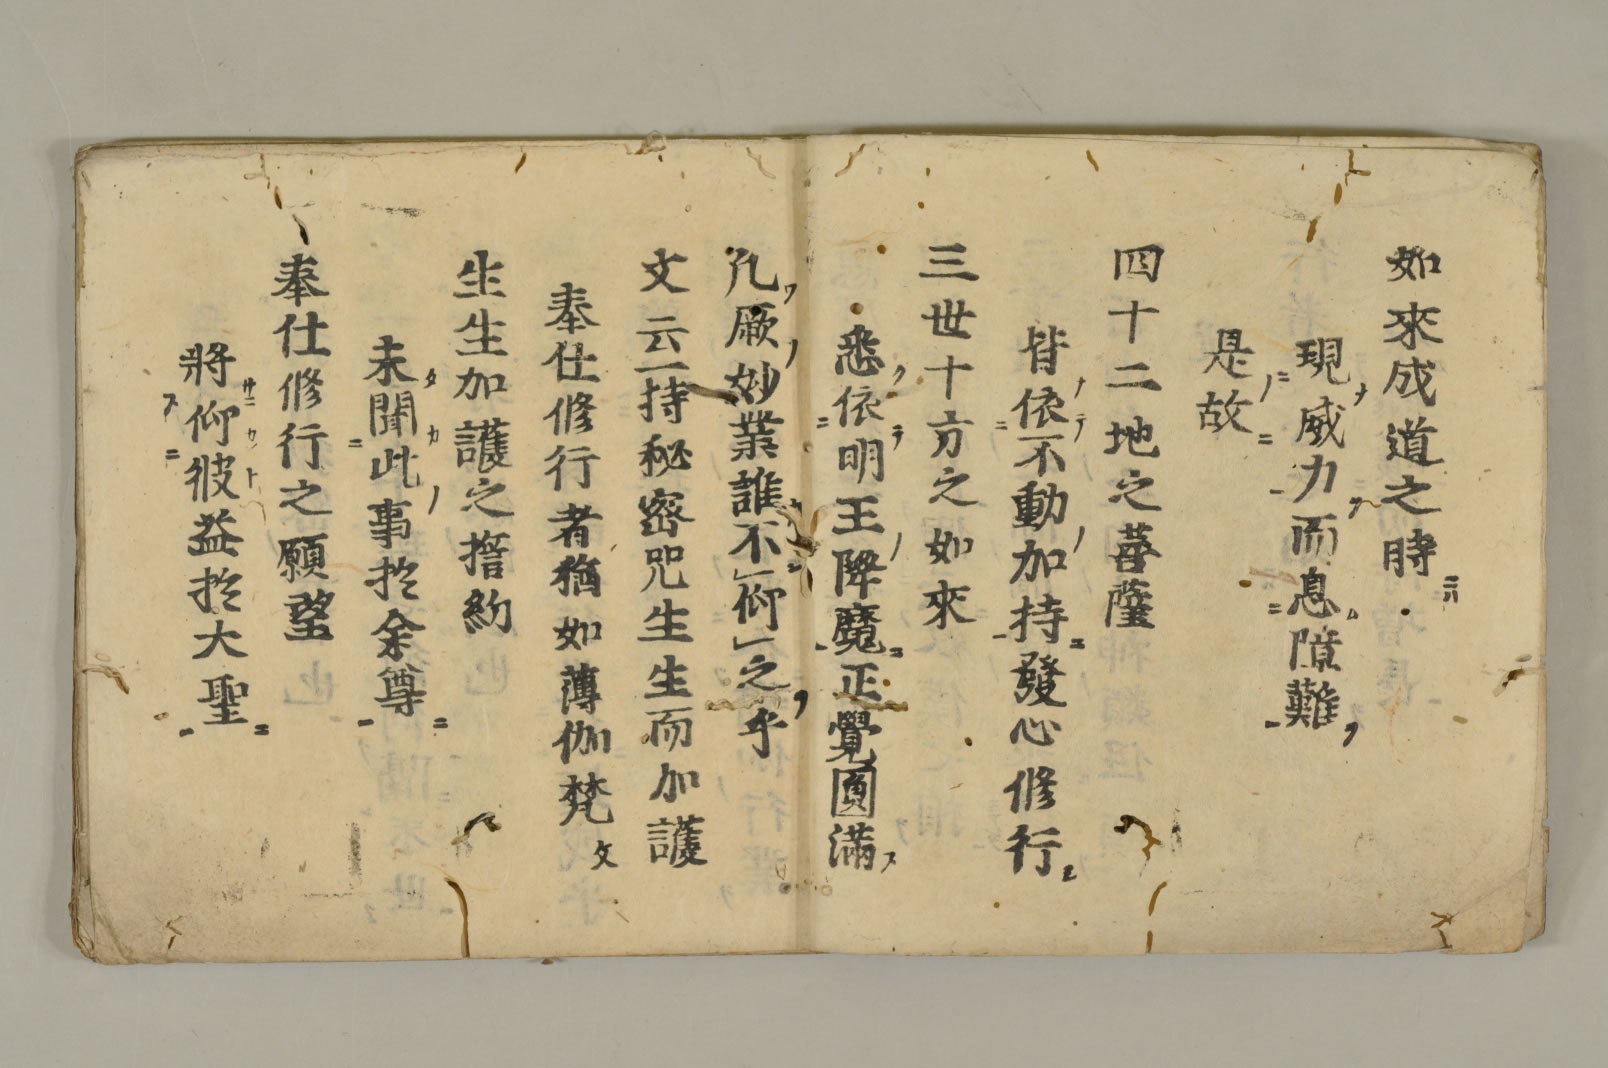 如來成道之時
現威力而息障難
是故
四十二地之菩薩
皆依不動加持發心修行
三世十方之如來
悉依明王降魔正覺圓滿
凡厥妙業誰不仰之乎
文云一持秘密咒生生而加護
奉仕修行者猶如薄伽梵文
生生加護之誓約
未聞此事於余尊
奉仕修行之願望
將仰彼益於大聖